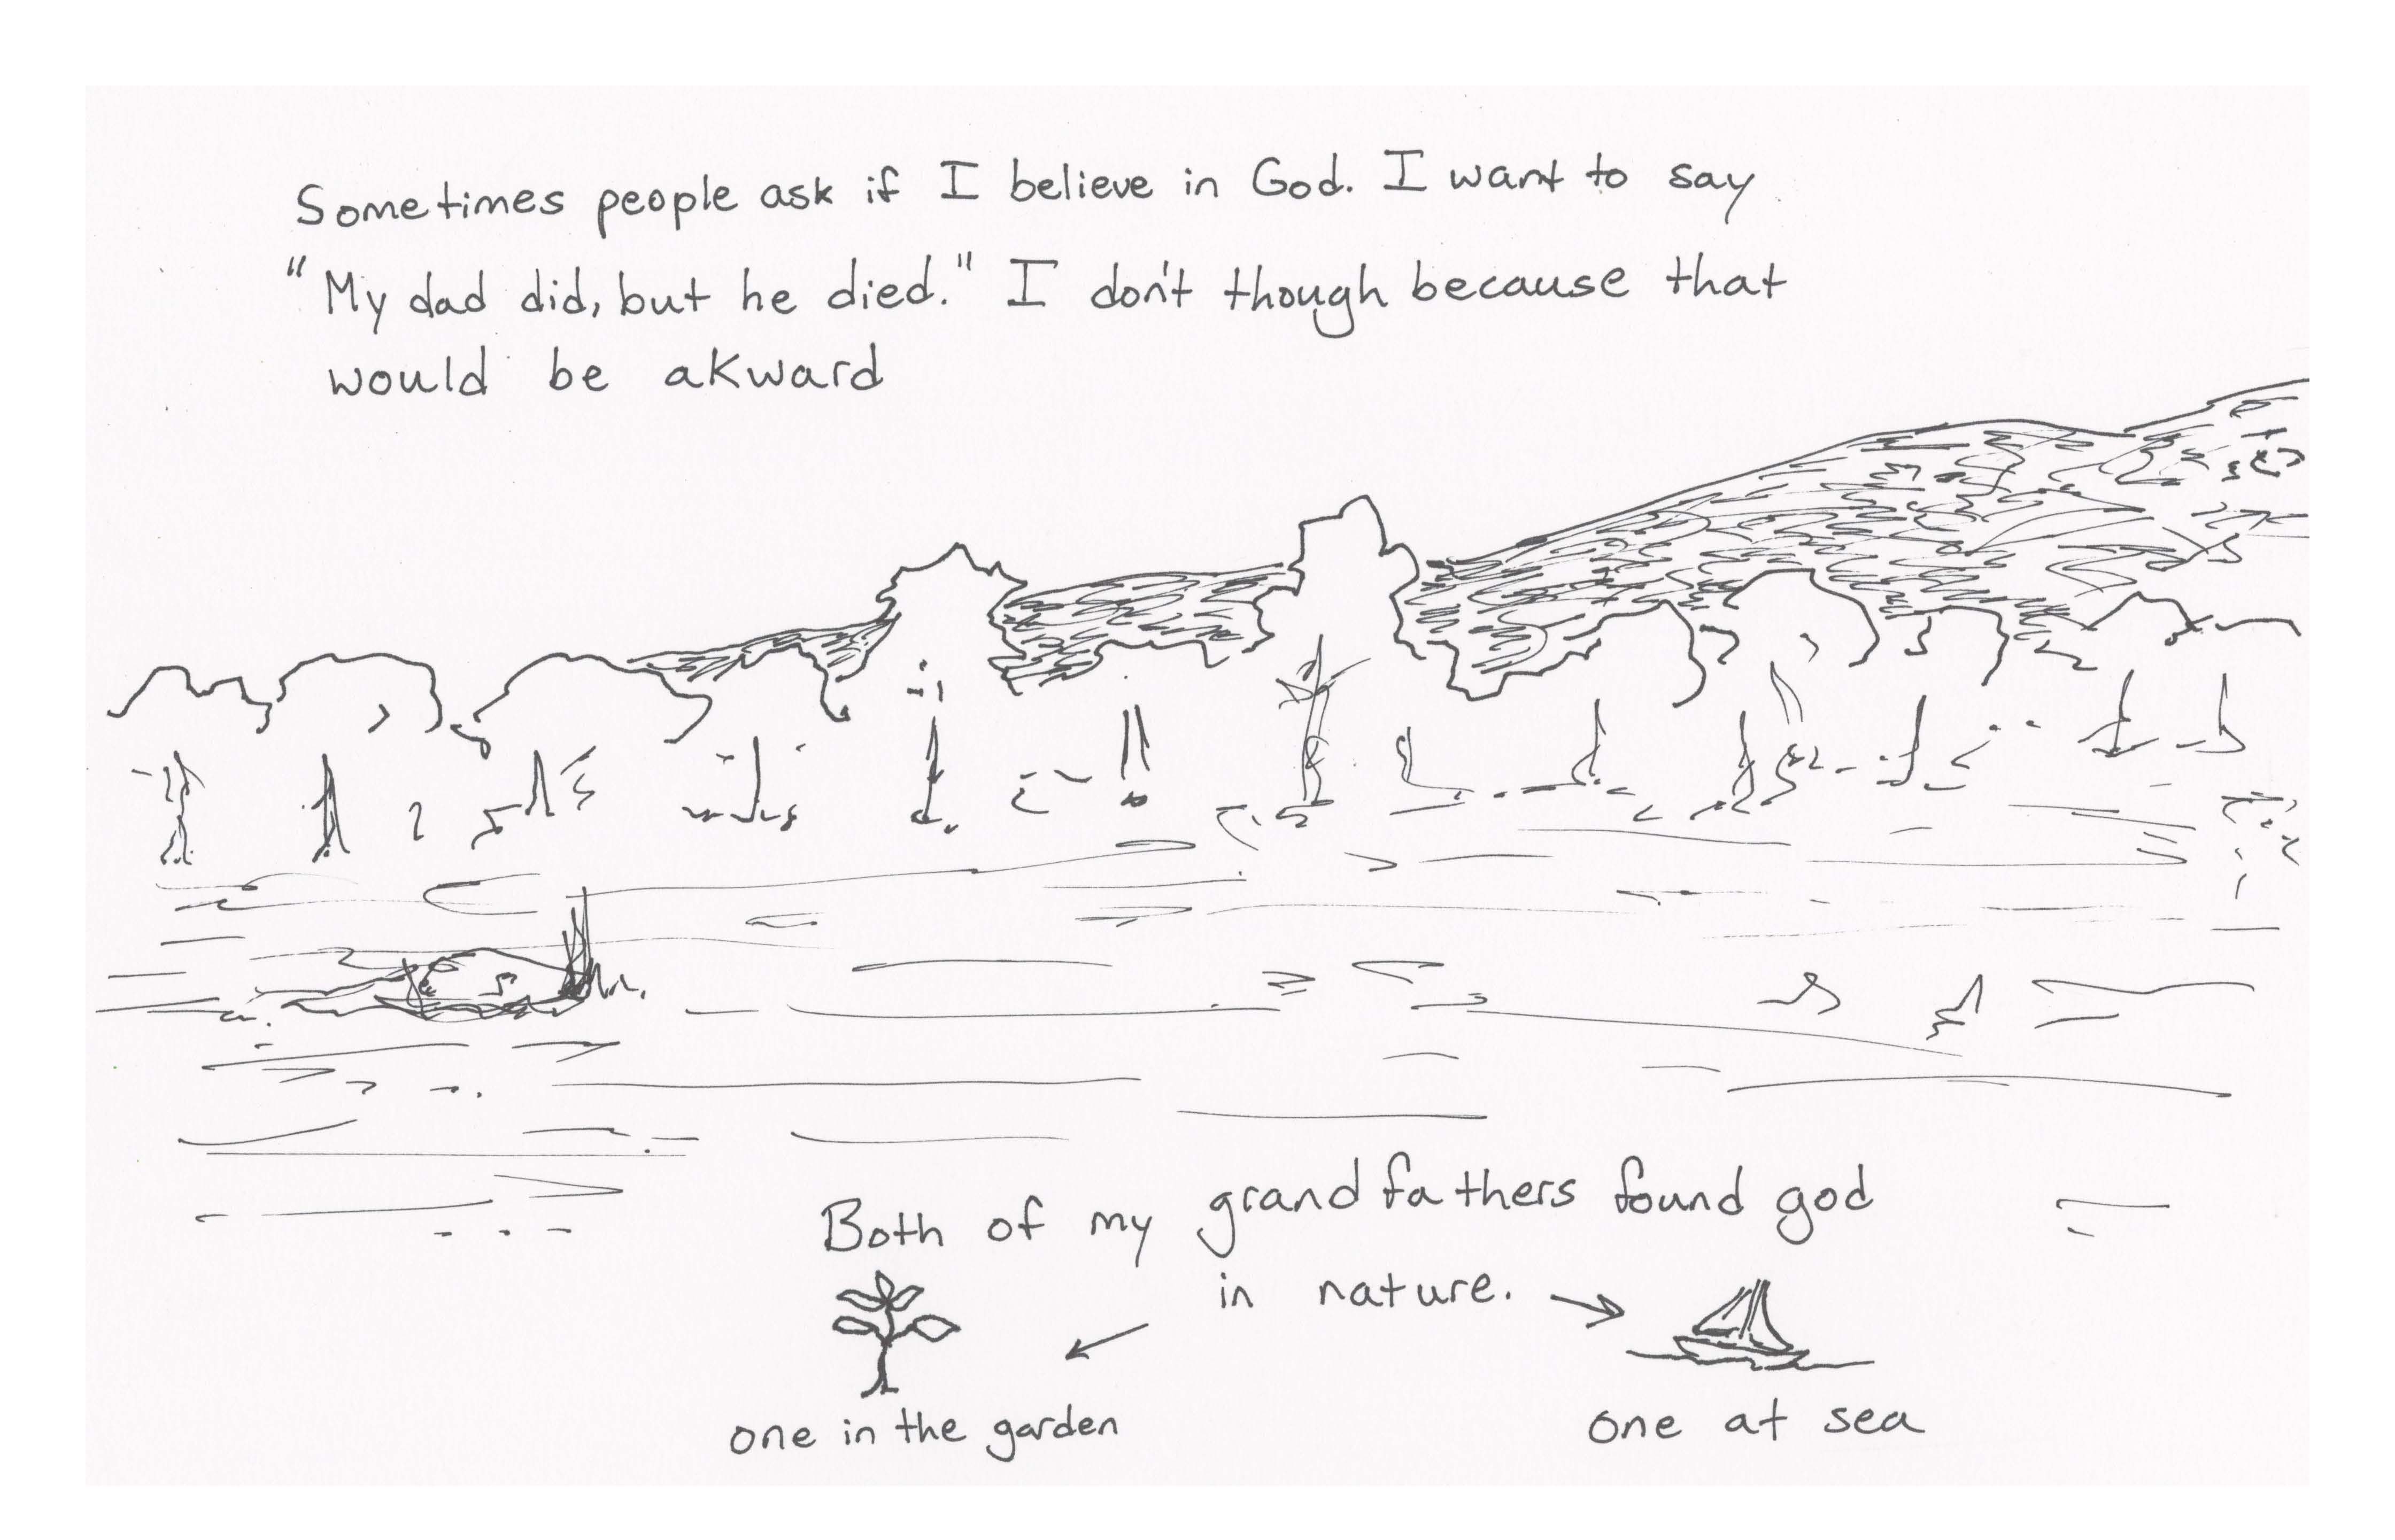 Sometimes people ask if I believe in God. I want to say
"My dad did, but he died." I don't though because that
would be akward
Both of my grandfathers found god
in nature.
one in the garden
one at sea